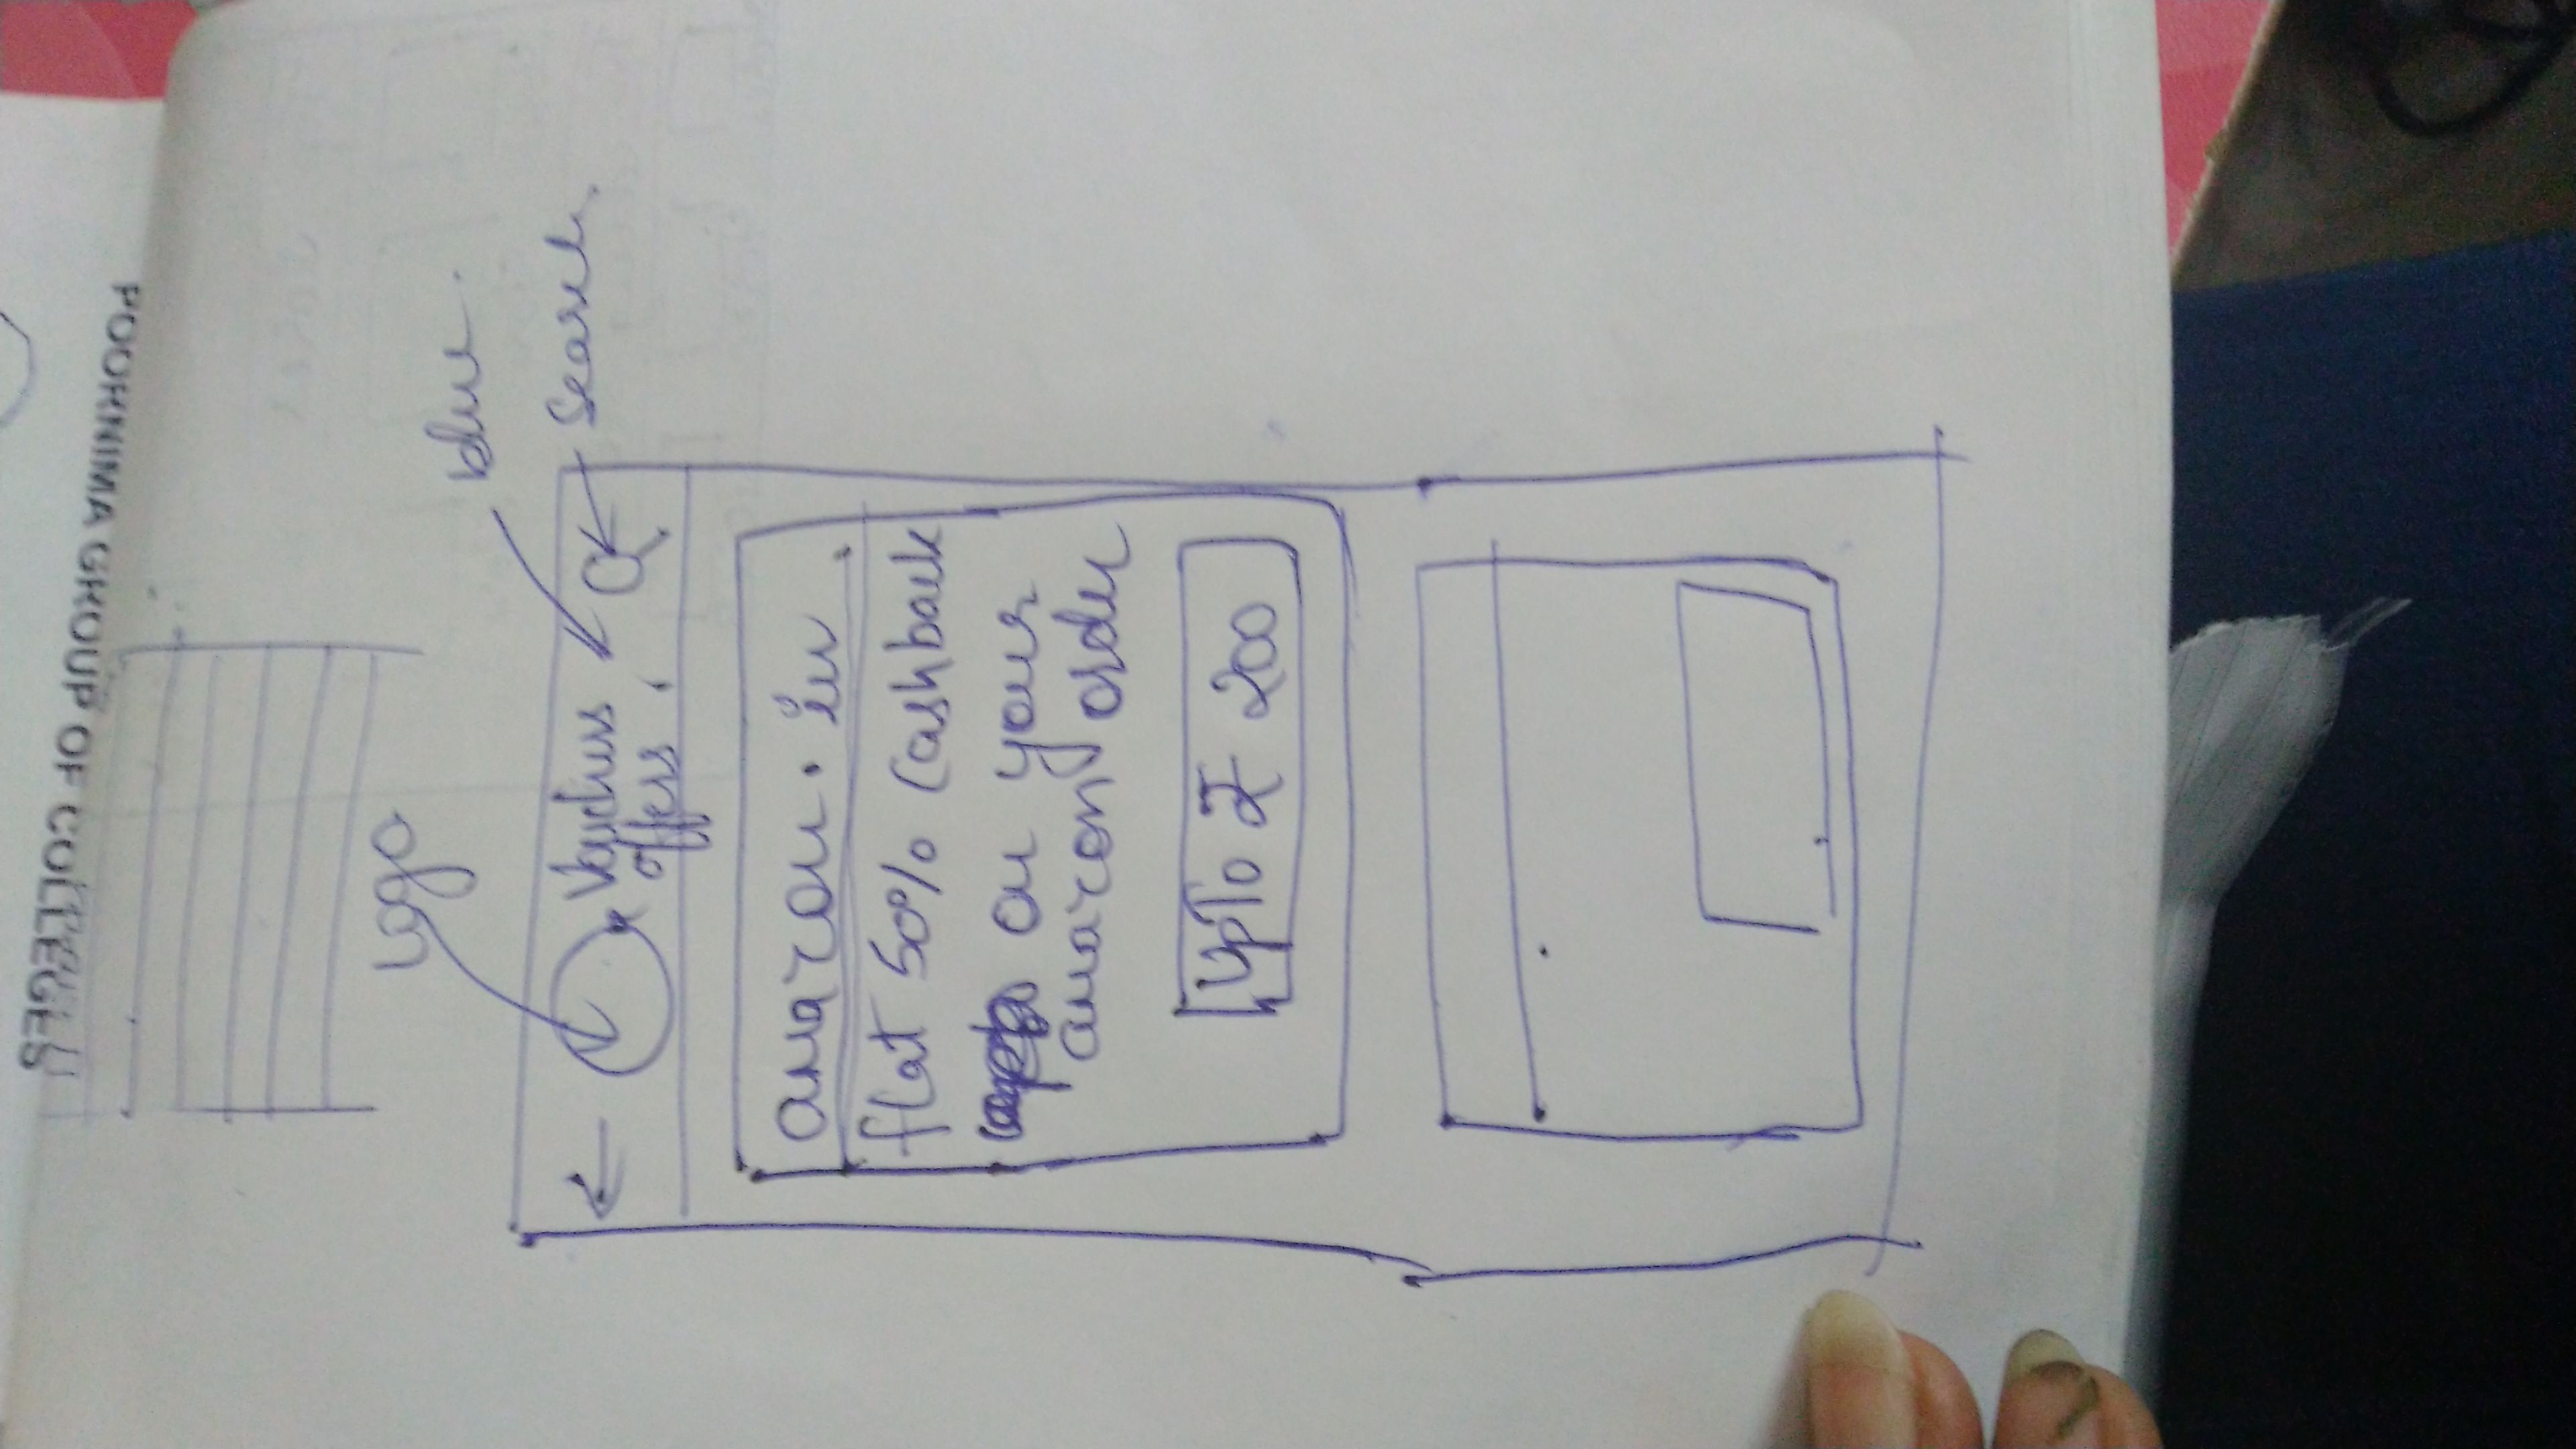 POORNIMA GROUP OF COLLEGES
Logo
blue.
Vouchers
offers
Search
amazon.in
flat 50% Cashback
on your
amazon order
UpTo ₹ 200